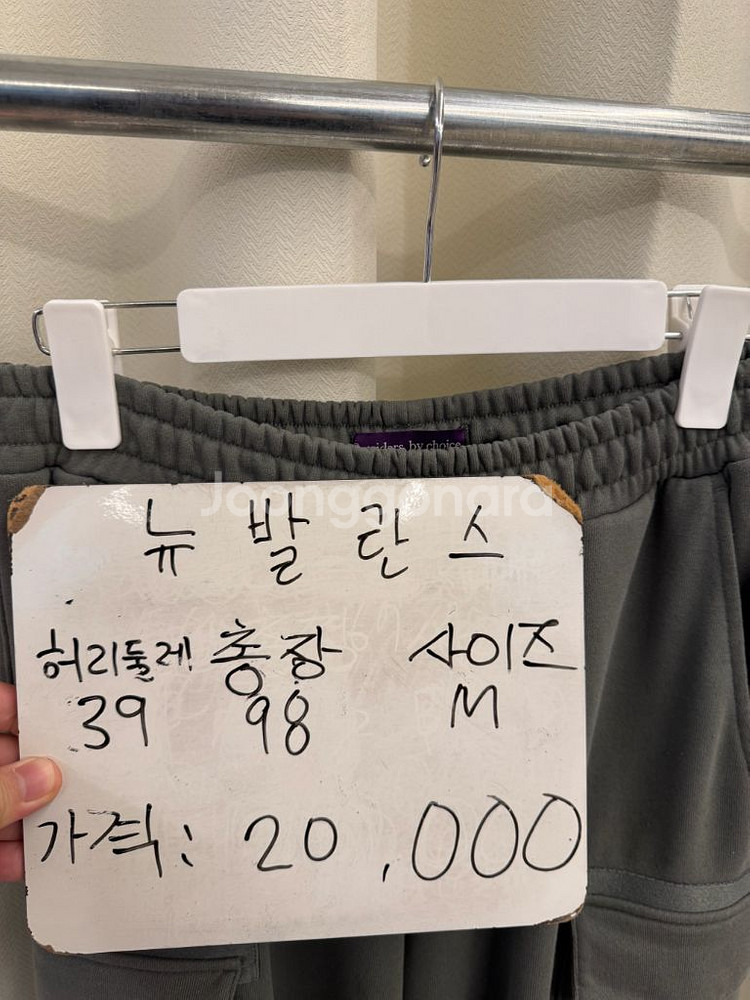 by choice
Joonggonara
뉴 발 란 스
허리둘레 총장 사이즈
39 98 M
가격: 20,000